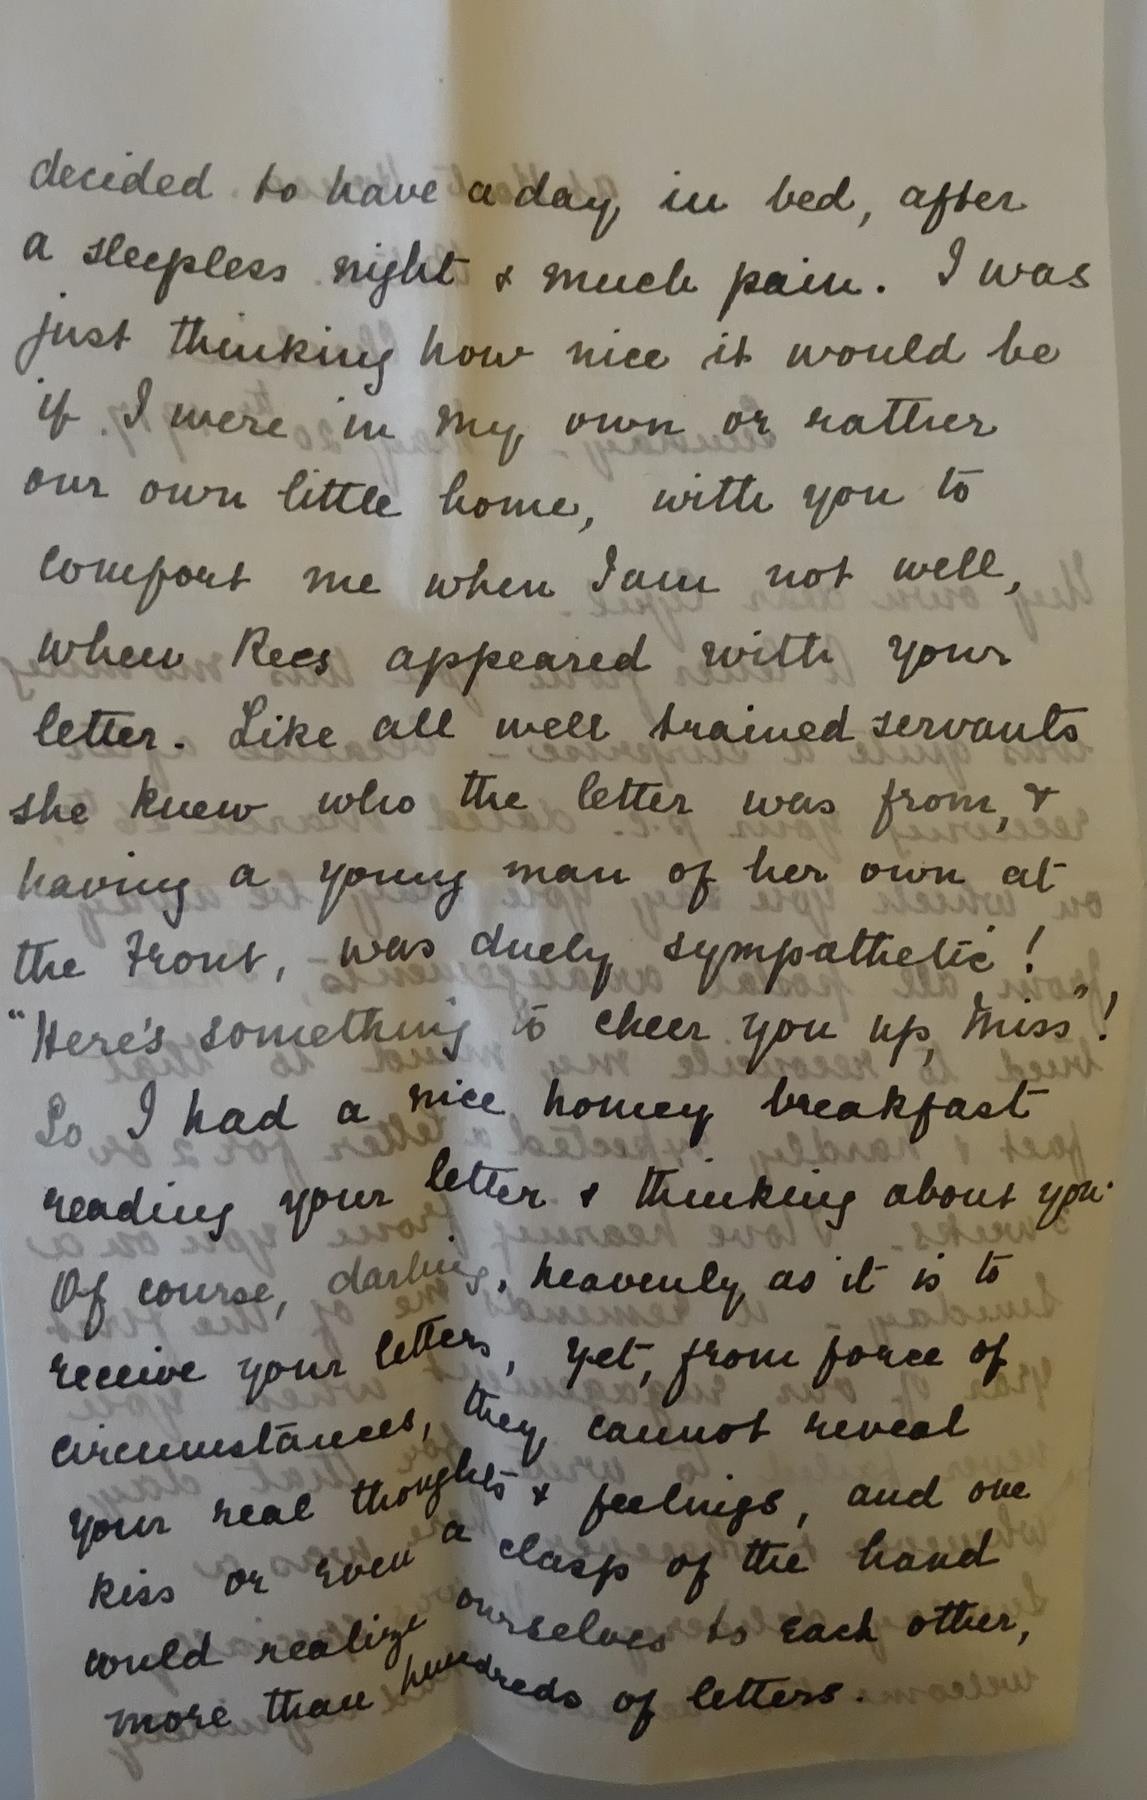 decided to have a day, in bed, after
a sleepless night & much pain. I was
just thinking how nice it would be
if I were in my, own or rather
our own little home, with you to
comfort me when I am not well,
when Rees appeared with your
letter. Like all well trained servants
she knew who the letter was from, &
having a young man of her own at
the Front, was duely sympathetic!
"Here's something to cheer you up, Miss"!
So I had a nice homey breakfast
reading your letter & thinking about you.
Of course, darling, heavenly as it is to
receive your letters, yet, from force of
circumstances, they cannot reveal
your real thoughts & feelings, and one
kiss or even a clasp of the hand
would realize ourselves to each other,
more than hundreds of letters.